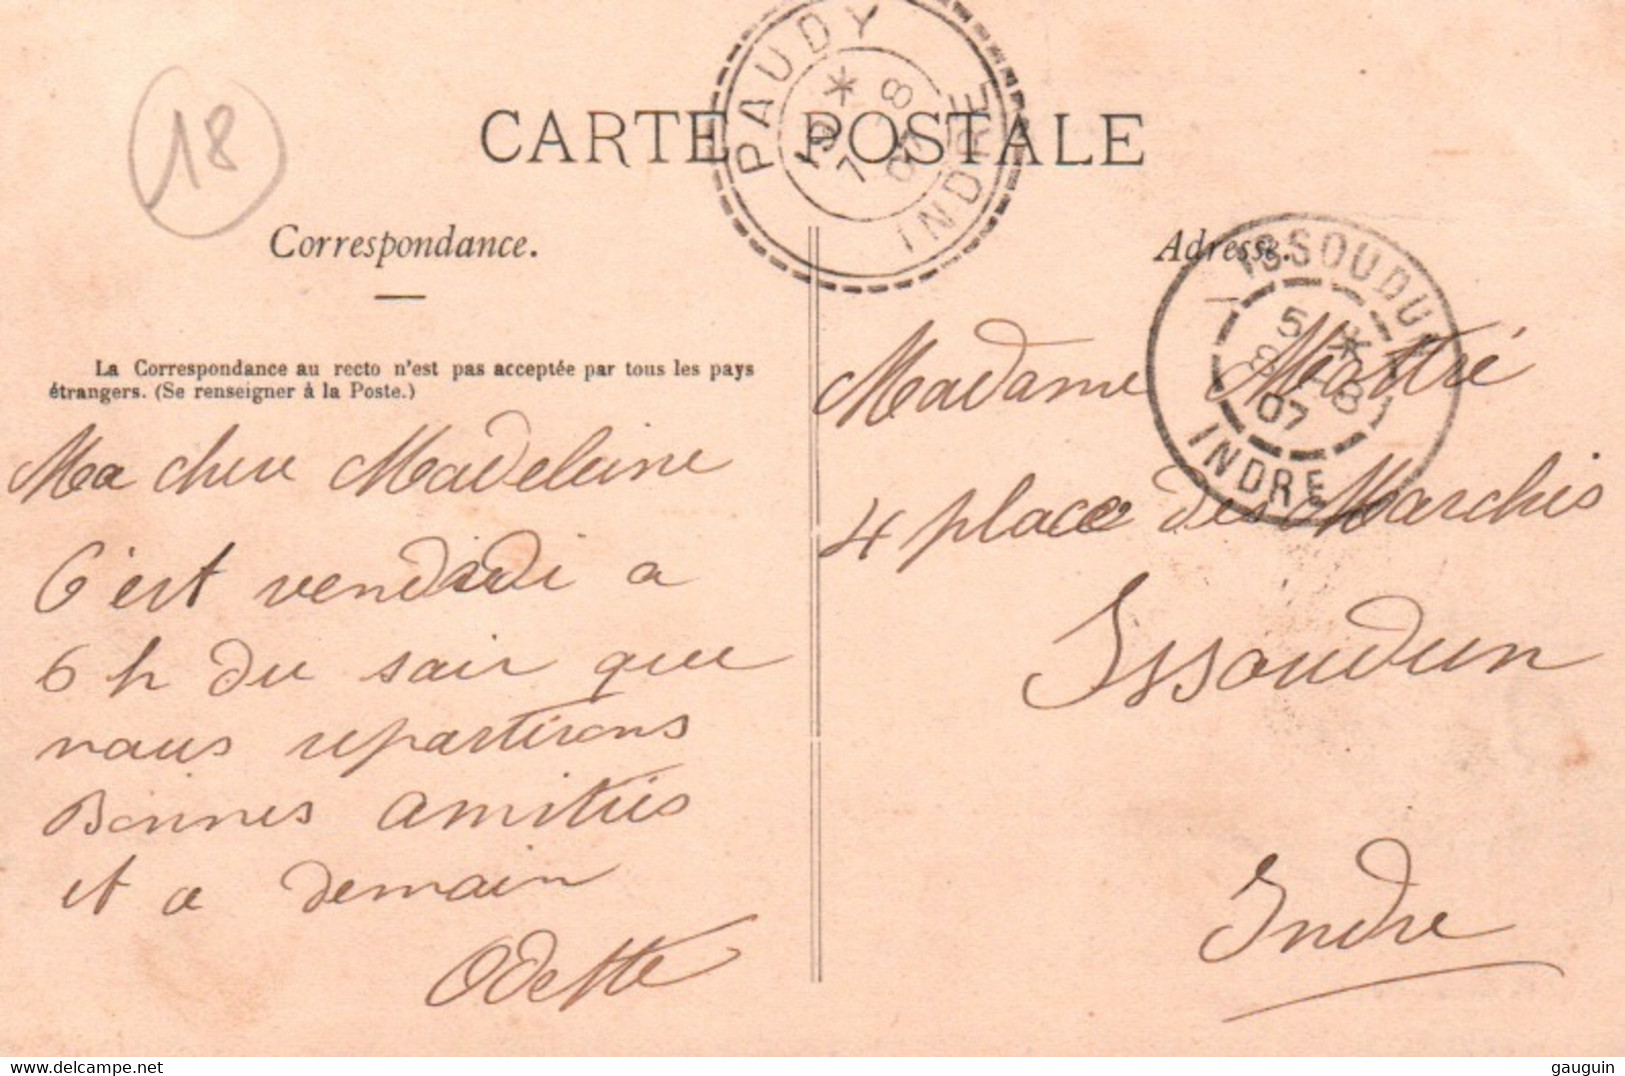 18
CARTE POSTALE
PAUDY
INDRE
Correspondance.
Adresse.
ISSOUDUN
5 *
8 -8
07
INDRE
La Correspondance au recto n'est pas acceptée par tous les pays
étrangers. (Se renseigner à la Poste.)
Ma chere Madeleine
C'est vendredi a
6 h du soir que
nous repartirons
Bonnes amitiés
et a demain
Odette
Madame Maitré
4 place des Marchés
Issoudun
Indre
gauguin